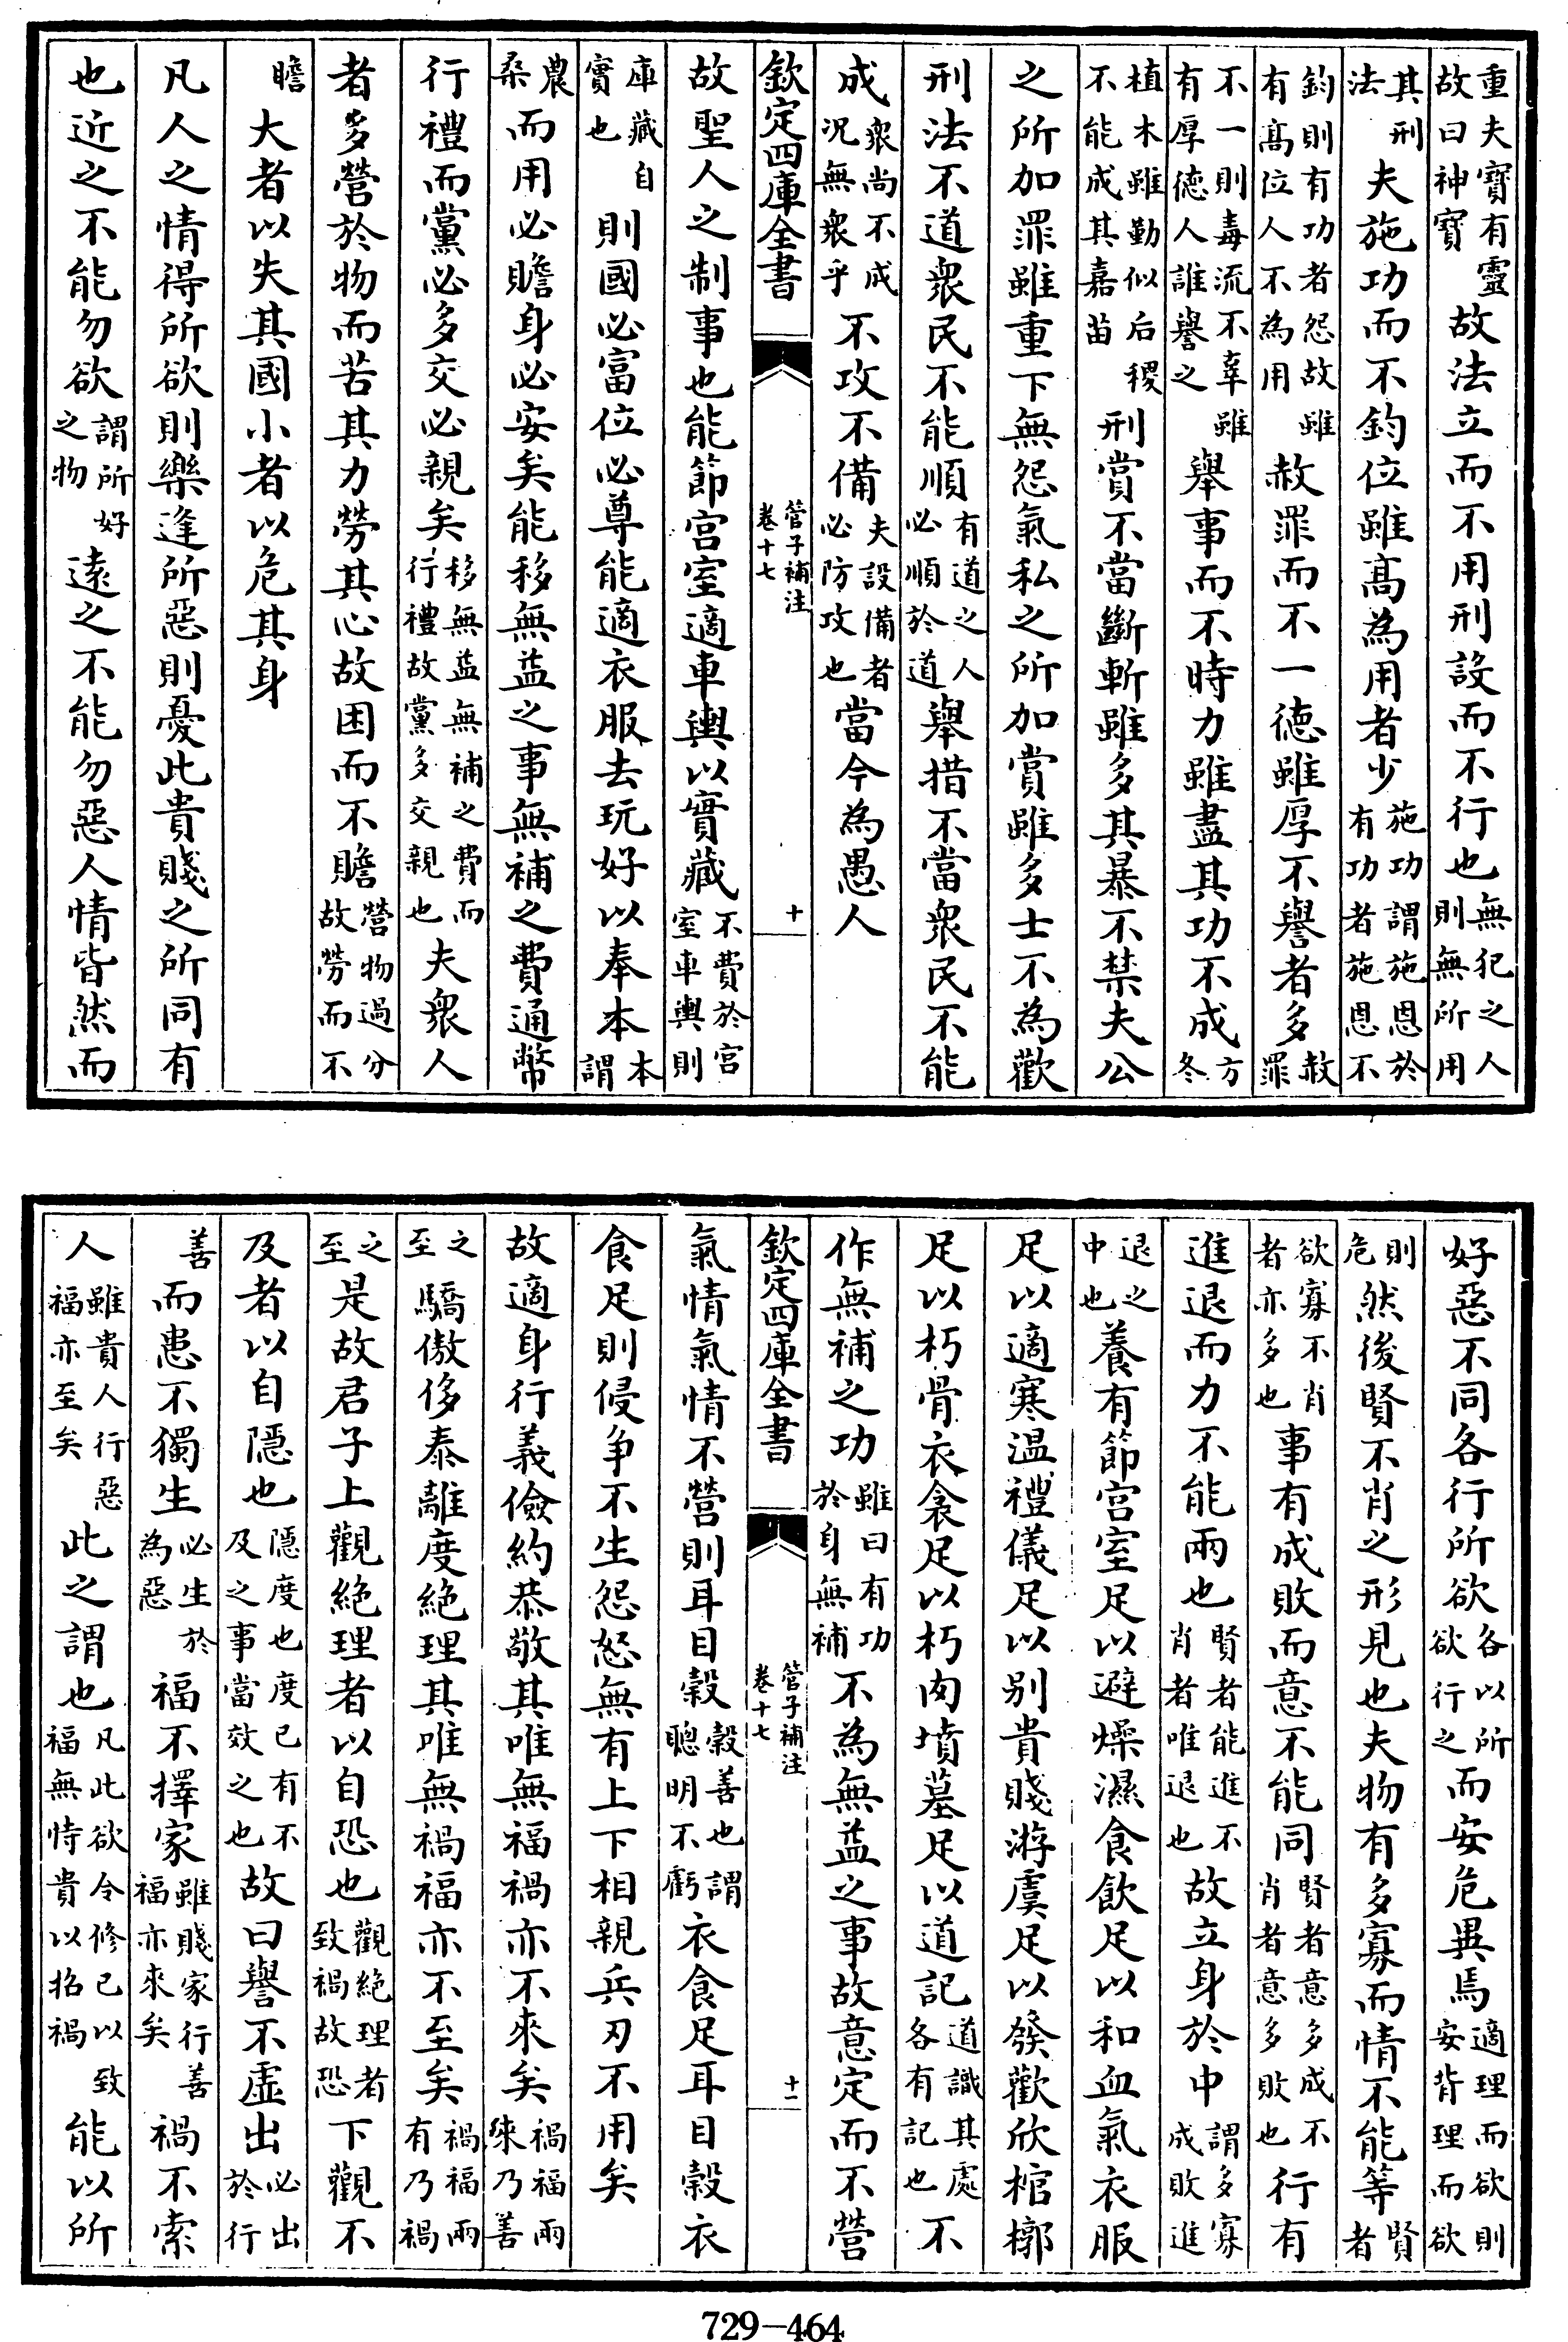 重夫寳有靈故曰神寳故法立而不用刑設而不行也無犯之人則無所用
其刑法夫施功而不鈞位雖髙為用者少施功謂施恩於有功者施恩不
鈞則有功者怨故雖有髙位人不為用赦罪而不一徳雖厚不譽者多赦罪
不一則毒流不辜雖有厚徳人誰譽之舉事而不時力雖盡其功不成方冬
植木雖勤似后稷不能成其嘉苗刑賞不當斷斬雖多其暴不禁夫公
之所加罪雖重下無怨氣私之所加賞雖多士不為歡
刑法不道衆民不能順有道之人必順於道舉措不當衆民不能
成衆尚不成況無衆乎不攻不備夫設備者必防攻也當今為愚人
欽定四庫全書 管子補注 卷十七 十
故聖人之制事也能節宫室適車輿以實藏不費於宫室車輿則
庫藏自實也則國必富位必尊能適衣服去玩好以奉本本謂
農桑而用必贍身必安矣能移無益之事無補之費通幣
行禮而黨必多交必親矣移無益無補之費而行禮故黨多交親也夫衆人
者多營於物而苦其力勞其心故困而不贍營物過分故勞而不
贍大者以失其國小者以危其身
凡人之情得所欲則樂逢所惡則憂此貴賤之所同有
也近之不能勿欲謂所好之物遠之不能勿惡人情皆然而
好惡不同各行所欲各以所欲行之而安危異焉適理而欲則安背理而欲
則危然後賢不肖之形見也夫物有多寡而情不能等賢者
欲寡不肖者亦多也事有成敗而意不能同賢者意多成不肖者意多敗也行有
進退而力不能兩也賢者能進不肖者唯退也故立身於中謂多寡成敗進
退之中也養有節宫室足以避燥濕食飲足以和血氣衣服
足以適寒温禮儀足以别貴賤游虞足以發歡欣棺槨
足以朽骨衣衾足以朽肉墳墓足以道記道識其處各有記也不
作無補之功雖曰有功於身無補不為無益之事故意定而不營
欽定四庫全書 管子補注 卷十七 十一
氣情氣情不營則耳目穀穀善也謂聰明不虧衣食足耳目穀衣
食足則侵争不生怨怒無有上下相親兵刃不用矣
故適身行義儉約恭敬其唯無福禍亦不來矣禍福兩來乃善
之至驕傲侈泰離度絶理其唯無禍福亦不至矣禍福兩有乃禍
之至是故君子上觀絶理者以自恐也觀絶理者致禍故恐下觀不
及者以自隱也隱度也度已有不及之事當效之也故曰譽不虚出必出於行
善而患不獨生必生於為惡福不擇家雖賤家行善福亦來矣禍不索
人雖貴人行惡福亦至矣此之謂也凡此欲令修已以致福無恃貴以招禍能以所
729-464